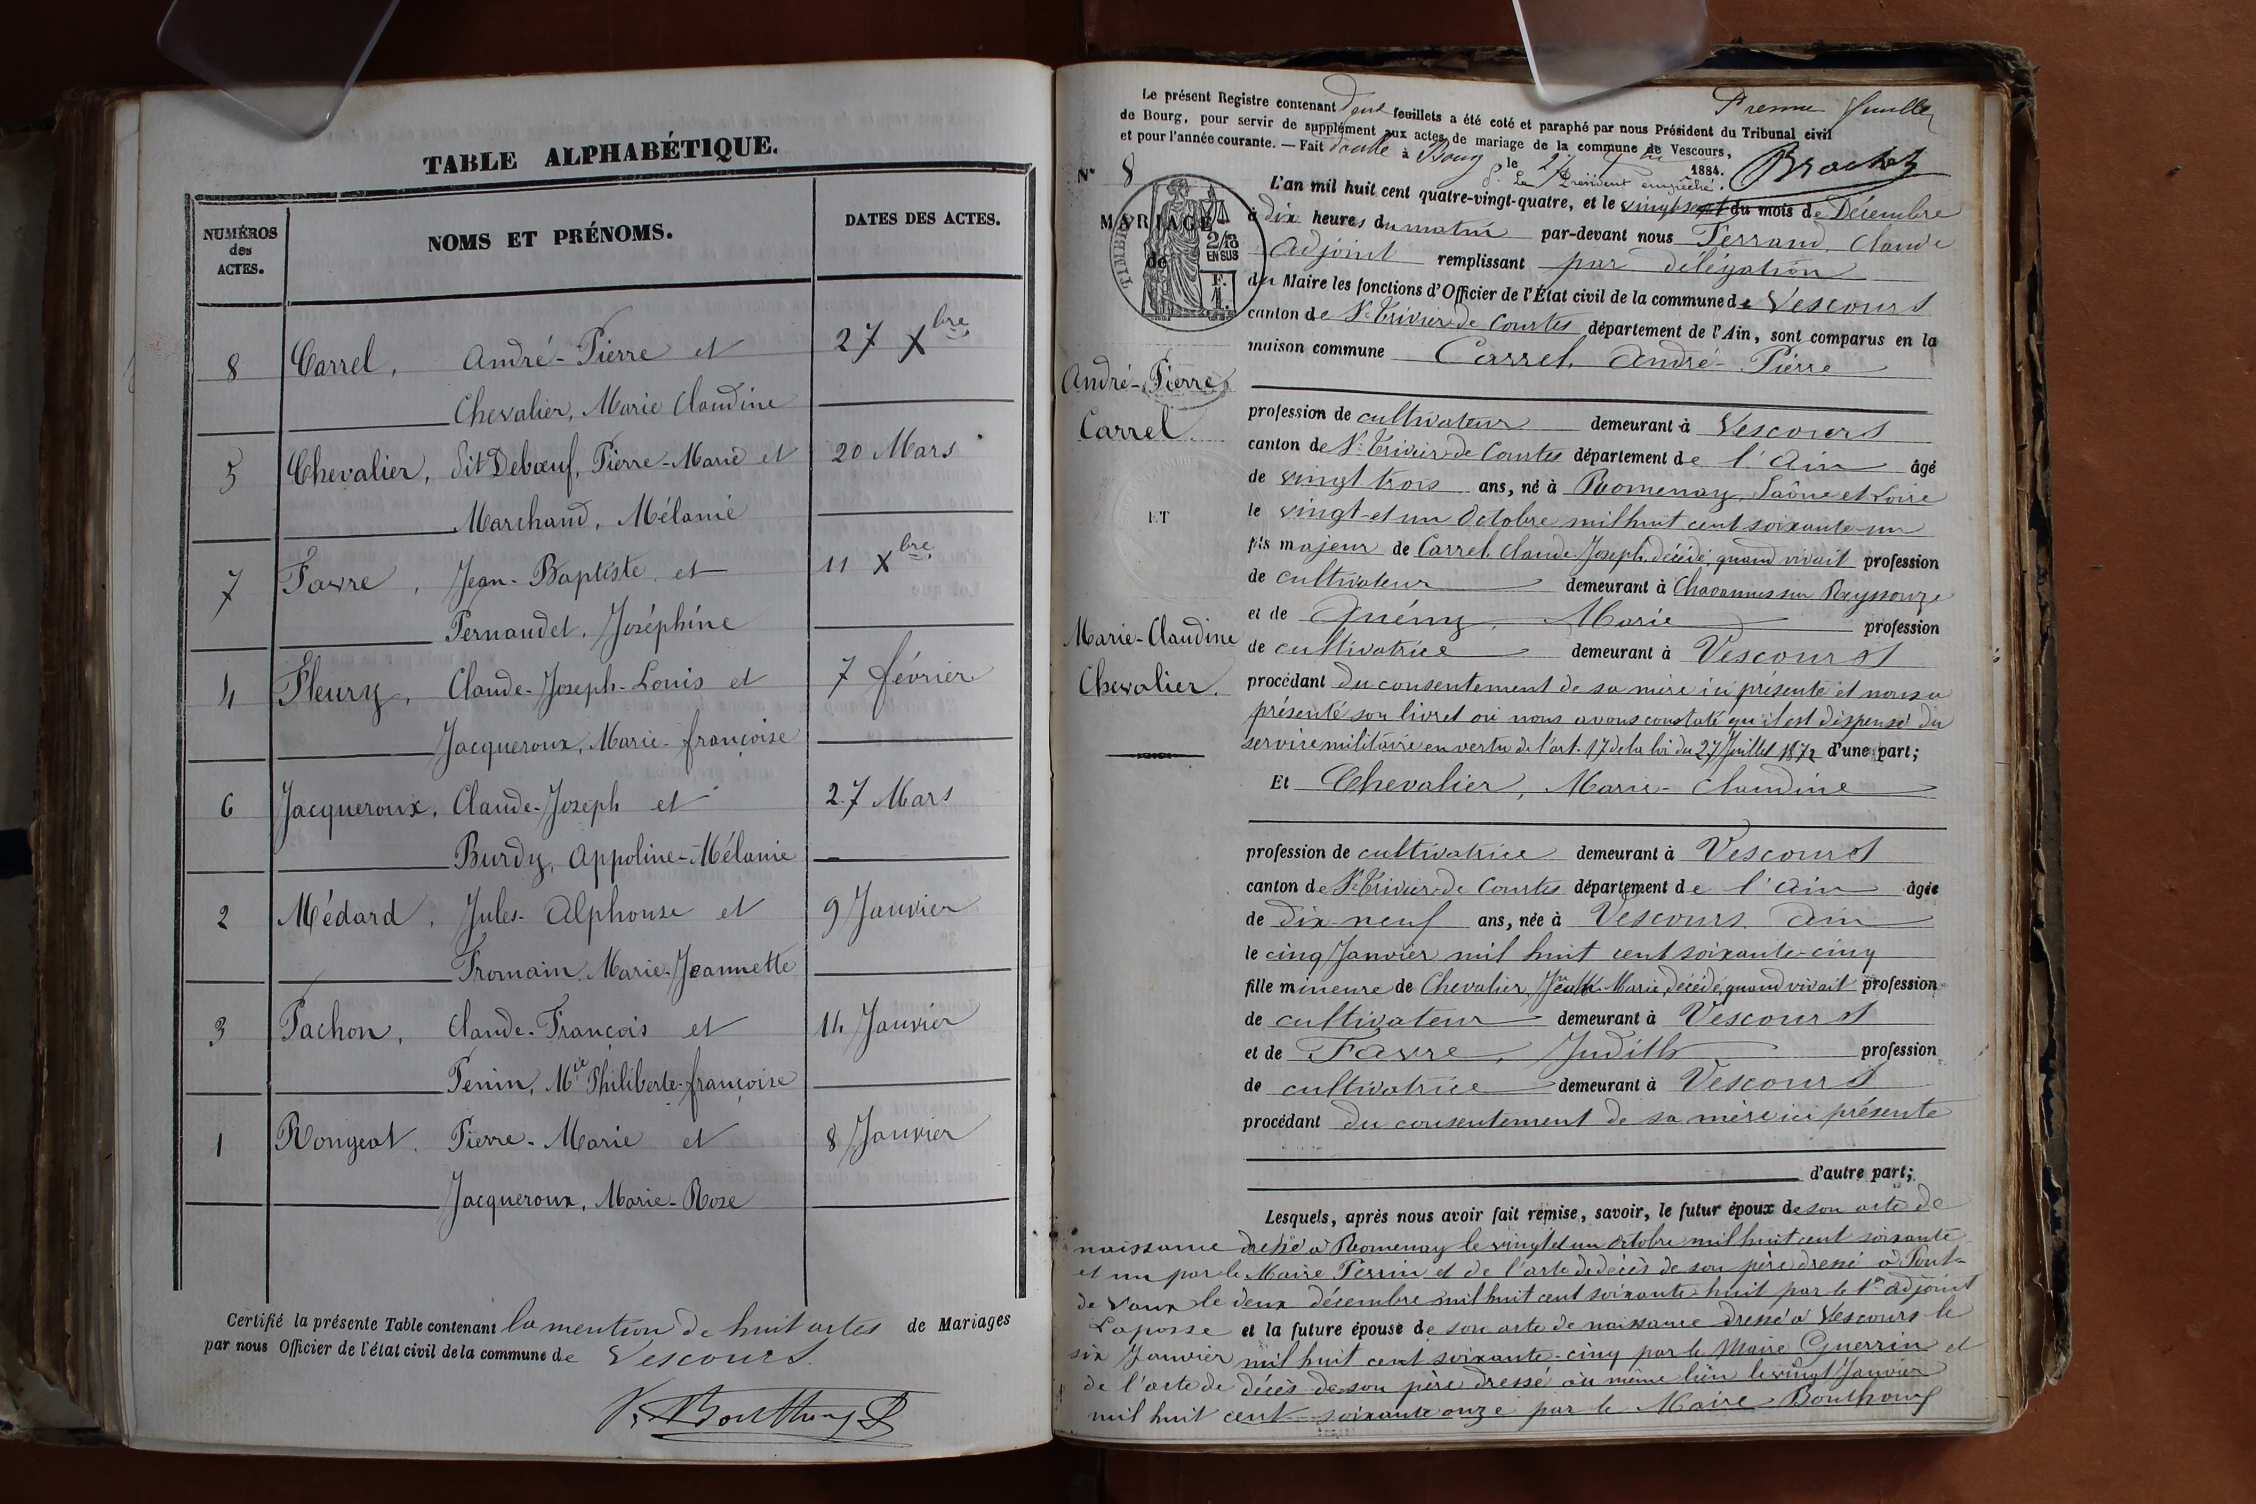 TABLE ALPHABÉTIQUE.
NUMÉROS des ACTES.
NOMS ET PRÉNOMS.
DATES DES ACTES.
8 Carrel, André-Pierre et 27 Xbre
Chevalier, Marie Claudine
5 Chevalier, dit Debœuf, Pierre-Marie et 20 Mars
Marchand, Mélanie
7 Favre, Jean-Baptiste et 11 Xbre
Pernaudet, Joséphine
4 Fleury, Claude-Joseph-Louis et 7 février
Jacqueroux, Marie-françoise
6 Jacqueroux, Claude-Joseph et 27 Mars
Burdy, Appoline-Mélanie
2 Médard, Jules-Alphonse et 9 Janvier
Fromain, Marie-Jeannette
3 Pachon, Claude-François et 14 Janvier
Penin, Mie Philiberte-françoise
1 Rongeat, Pierre-Marie et 8 Janvier
Jacqueroux, Marie-Rose
Certifié la présente Table contenant la mention de huit actes de Mariages
par nous Officier de l'état civil de la commune de Vescours.
Le présent Registre contenant deux feuillets a été coté et paraphé par nous Président du Tribunal civil
de Bourg, pour servir de supplément aux actes de mariage de la commune de Vescours,
et pour l'année courante. — Fait double à Bourg le 1884.
Le Président empêché.
N° 8
MARIAGE
de
TIMBRE
2/10 EN SUS
F. 1.
André-Pierre
Carrel
ET
Marie-Claudine
Chevalier.
L'an mil huit cent quatre-vingt-quatre, et le vingt sept du mois de Décembre
à dix heures du matin par-devant nous Ferrand Claude
Adjoint remplissant par délégation
du Maire les fonctions d'Officier de l'État civil de la commune de Vescours
canton de St Trivier-de Courtes département de l'Ain, sont comparus en la
maison commune Carrel, André-Pierre
profession de cultivateur demeurant à Vescours
canton de St Trivier-de Courtes département de l'Ain âgé
de vingt trois ans, né à Romenay, Saône et Loire
le vingt-et un Octobre mil huit cent soixante-un
fils majeur de Carrel Claude Joseph, décédé, quand vivait profession
de cultivateur demeurant à Chavannes sur Reyssouze
et de Guémy, Marie profession
de cultivatrice demeurant à Vescours
procédant du consentement de sa mère ici présente et nous a
présenté son livret où nous avons constaté qu'il est dispensé du
service militaire en vertu de l'art. 17 de la loi du 27 Juillet 1872 d'une part;
Et Chevalier, Marie-Claudine
profession de cultivatrice demeurant à Vescours
canton de St Trivier-de Courtes département de l'Ain âgée
de dix-neuf ans, née à Vescours Ain
le cinq Janvier mil huit cent soixante-cinq
fille mineure de Chevalier, Marie, décédé, quand vivait profession
de cultivateur demeurant à Vescours
et de Favre, Judith profession
de cultivatrice demeurant à Vescours
procédant du consentement de sa mère ici présente
d'autre part;
Lesquels, après nous avoir fait remise, savoir, le futur époux de son acte de
naissance dressé à Romenay le vingt et un octobre mil huit cent soixante
et un par le Maire Perrin et de l'acte de décès de son père dressé à Pont-
de Vaux le deux décembre mil huit cent soixante-huit par le 1er adjoint
Laposse et la future épouse de son acte de naissance dressé à Vescours le
six Janvier mil huit cent soixante-cinq par le Maire Guerrin et
de l'acte de décès de son père dressé au même lieu le vingt Janvier
mil huit cent soixante onze par le Maire Bouthouy